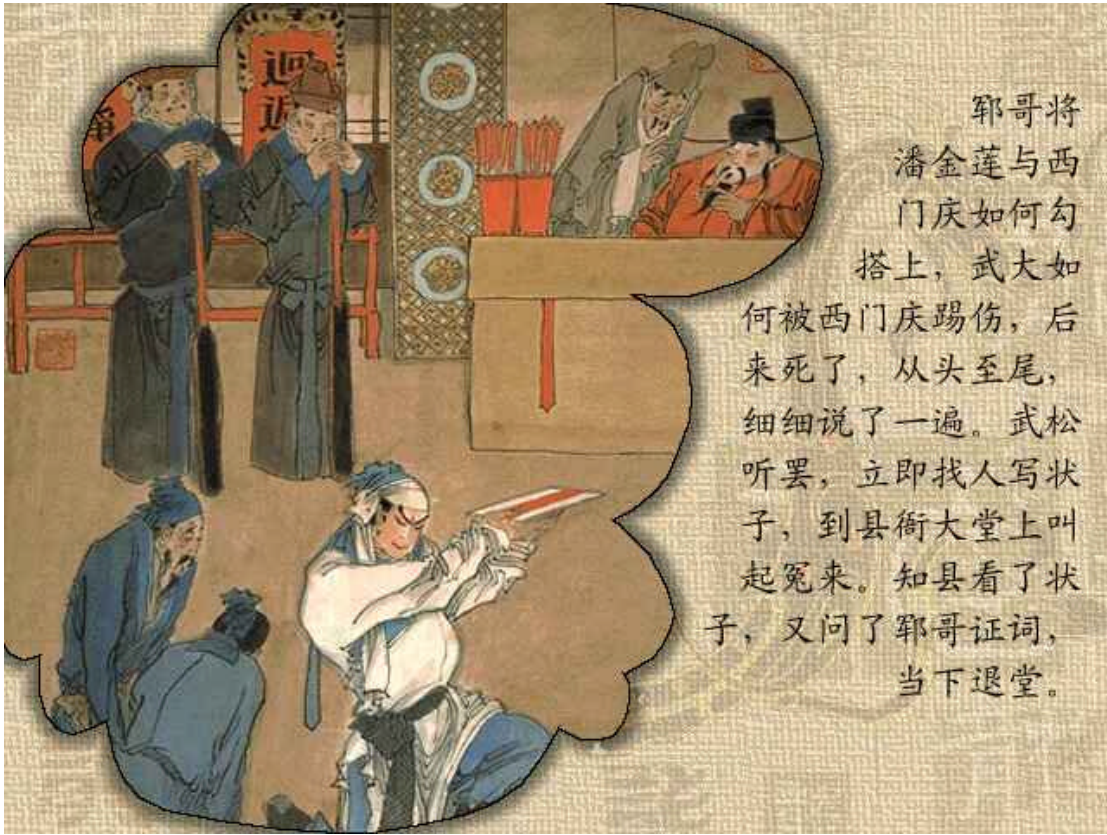 迴
避
郓哥将
潘金莲与西
门庆如何勾
搭上，武大如
何被西门庆踢伤，后
来死了，从头至尾，
细细说了一遍。武松
听罢，立即找人写状
子，到县衙大堂上叫
起冤来。知县看了状
子，又问了郓哥证词，
当下退堂。